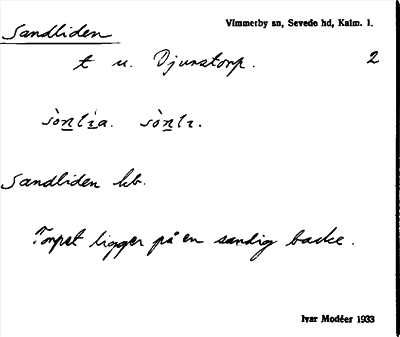 Sandliden
Vimmerby sn, Sevede hd, Kalm. l.
t u. Djurstorp.
2
sòntıa. sòntı.
Sandliden kb.
Torpet ligger på en sandig backe.
Ivar Modéer 1933